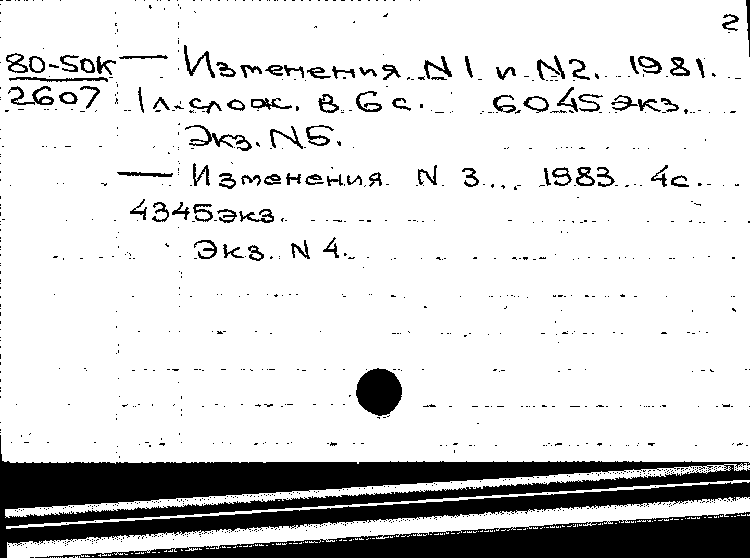 2
80-50к — Изменения N1 и N2. 1981.
2607 1л. слож. в 6с. 6045экз.
Экз. N5.
— Изменения N 3... 1983 4с.
4345экз.
Экз. N 4.